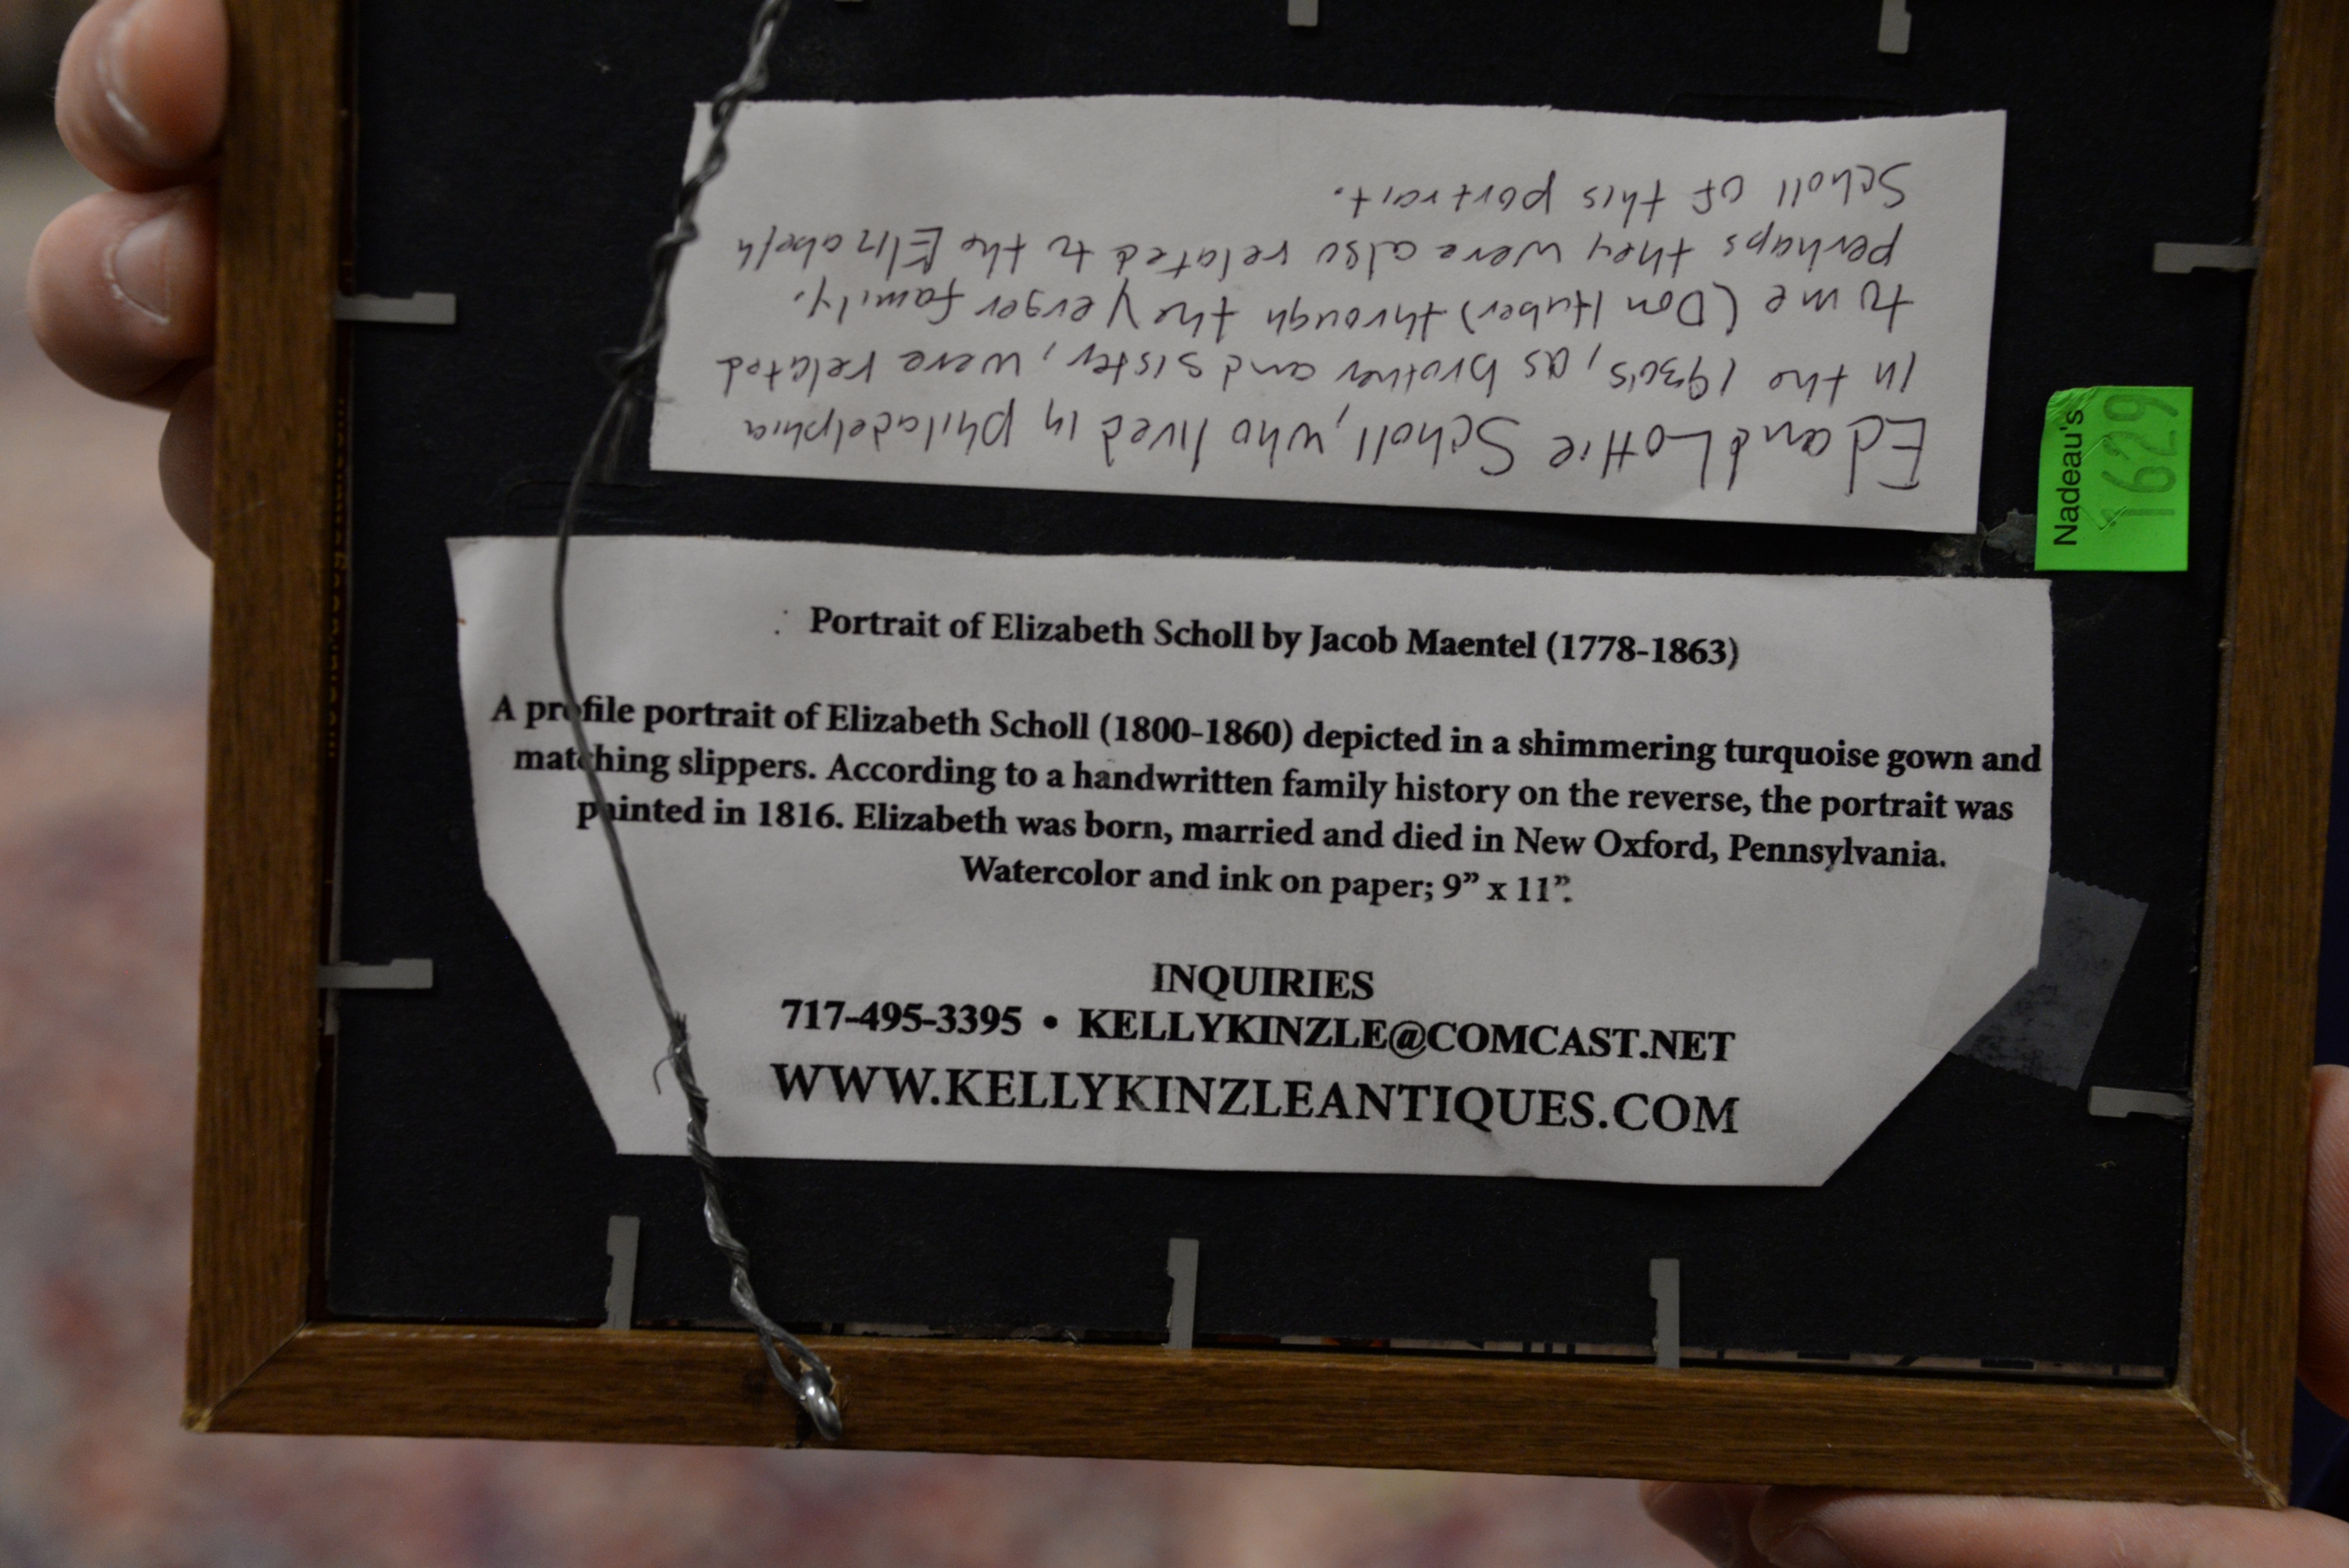 Ed and Lottie Scholl, who lived in philadelphia
in the 1930's, as brother and sister, were related
to me (Don Huber) through the Yerger family.
perhaps they were also related to the Elizabeth
Scholl of this portrait.
Nadeau's
1629
Portrait of Elizabeth Scholl by Jacob Maentel (1778-1863)
A profile portrait of Elizabeth Scholl (1800-1860) depicted in a shimmering turquoise gown and
matching slippers. According to a handwritten family history on the reverse, the portrait was
painted in 1816. Elizabeth was born, married and died in New Oxford, Pennsylvania.
Watercolor and ink on paper; 9” x 11”.
INQUIRIES
717-495-3395 • KELLYKINZLE@COMCAST.NET
WWW.KELLYKINZLEANTIQUES.COM